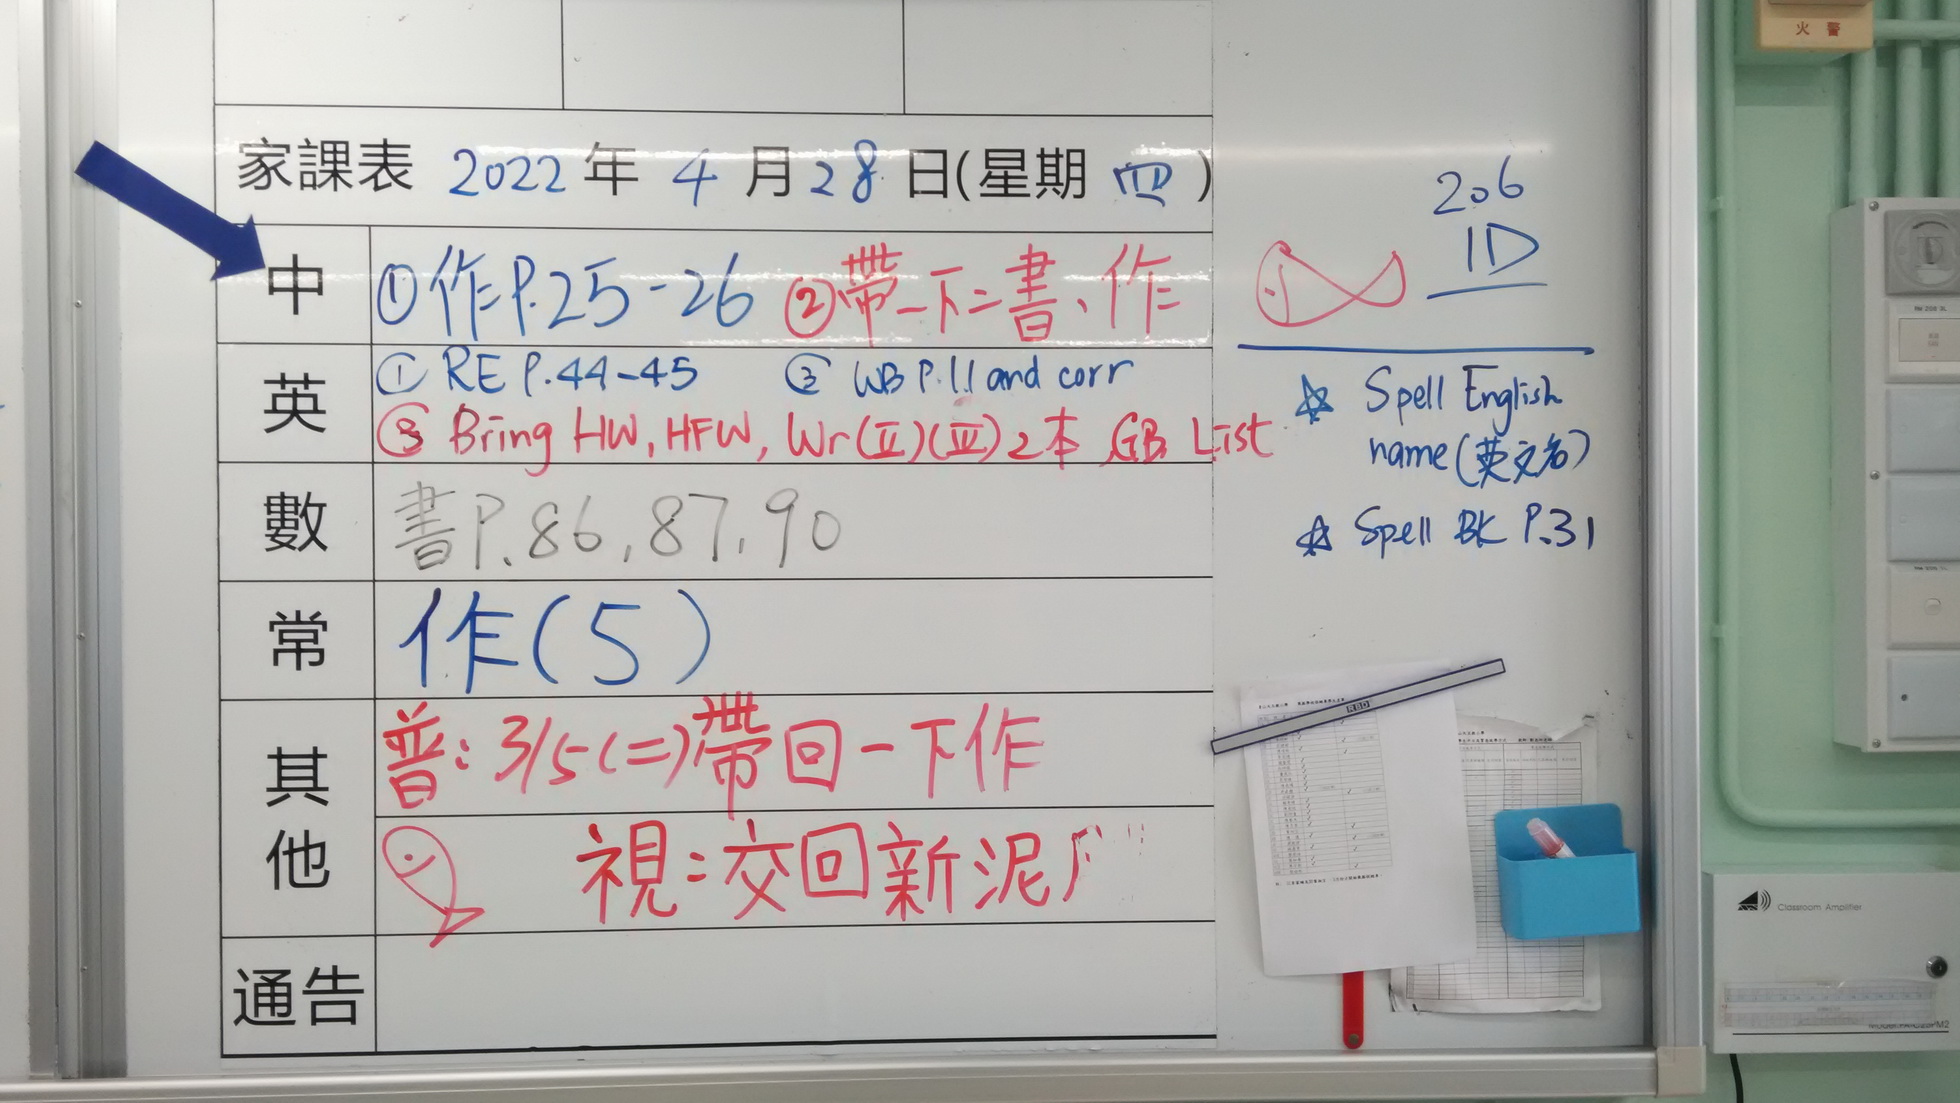 火 警
家課表 2022 年 4 月 28 日(星期 四 )
206
1D
中 ①作P.25-26 ②帶一下二書、作
英 ① RE P.44-45 ② WB P.11 and corr
③ Bring HW, HFW, Wr(II)(III) 2本 GB List
☆ Spell English
name(英文名)
☆ Spell BK P.31
數 書P.86,87,90
常 作(5)
其他
普: 3/5(二)帶回一下作
視:交回新泥
RBD
通告
Classroom Amplifier